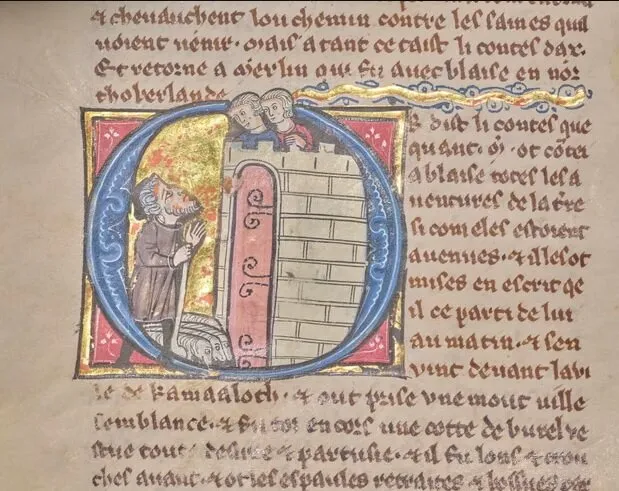 & cheuauchent lou chemin contre les saines quil
uoient uenir. Mais a tant ce taist li contes dax.
Et retorne a Merlin qui fu auec blaise en nor
thoberlande
R dist li contes que
quant .M. ot cōtei
a blaise totes les a
uentures de la t're
si com eles estoient
auenues. & il les ot
mises en escrit qe
il ce parti de lui
au matin. & sen
uint deuant la vi
le de Kamaaloth. & out prise vne mout uille
semblance. & fu tot en cors une cotte de burel ve
stue toute desire & partusie. & il fu lons & crou
ches auant. & ot les espaules retraites &